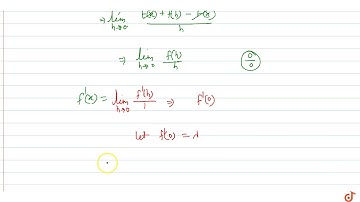 ⇒ lim h→0 f(x) + f(h) − f(x) / h
⇒ lim h→0 f(h)/h (0/0)
f'(x) = lim h→0 f'(h)/1 ⇒ f'(0)
let f'(0) = λ